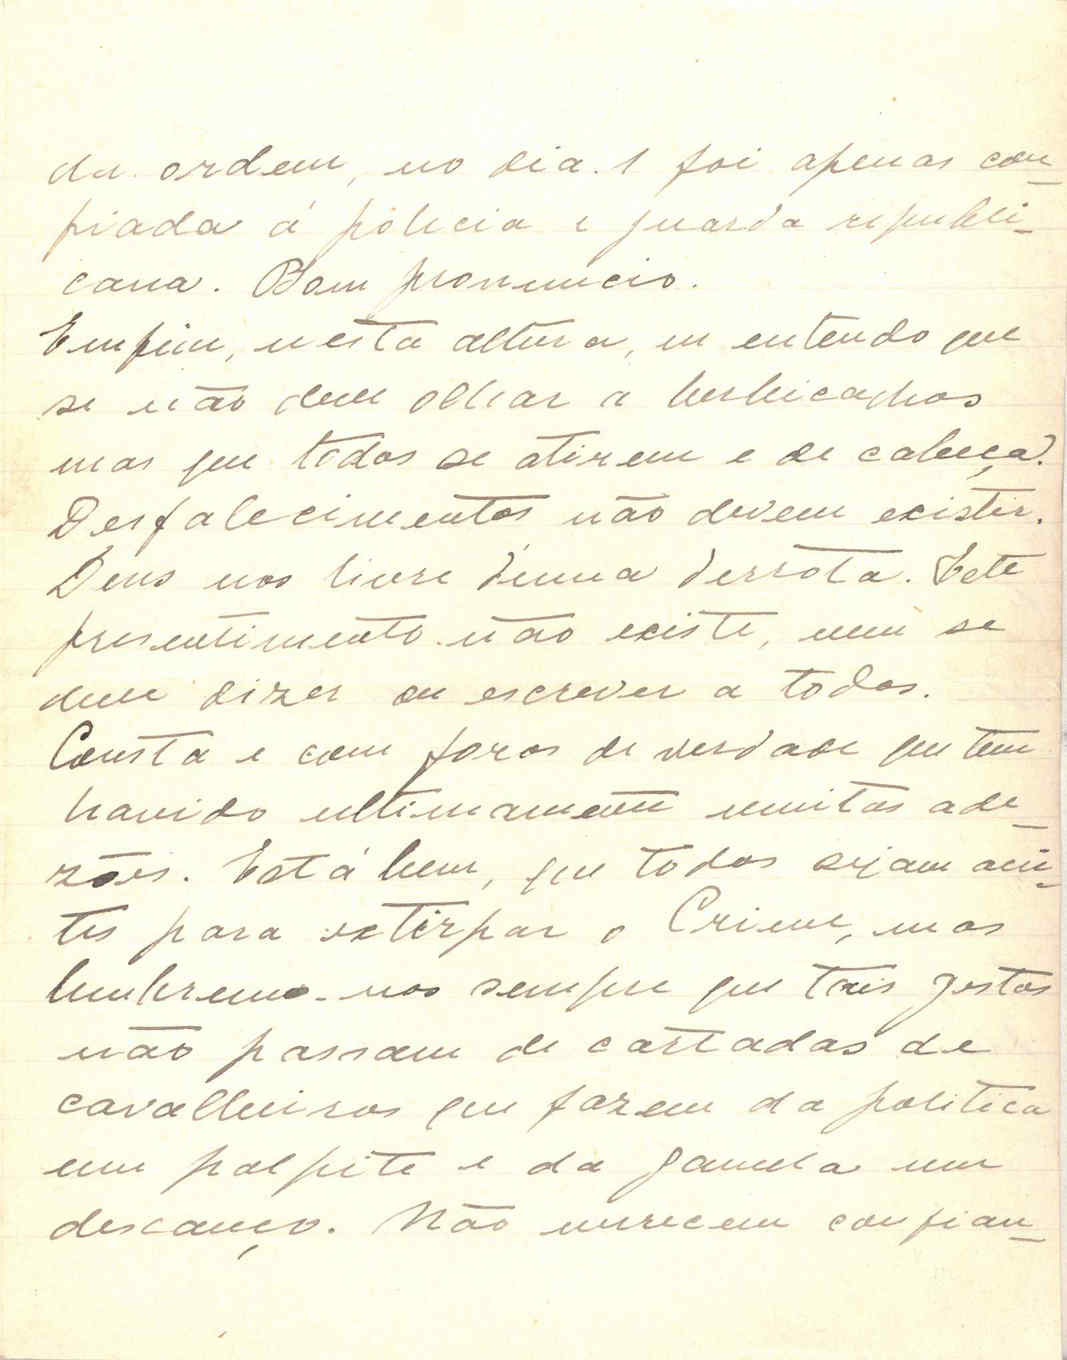 da ordem, no dia 1 foi apenas con-
fiada á policia e guarda republi-
cana. Bom pronuncio.
Emfim, nesta altura, eu entendo que
se não deve olhar a berbicachos
mas que todos se atirem e de cabeça.
Desfalecimentos não devem existir.
Deus nos livre d'uma derrota. Este
presentimento não existe, nem se
deve dizer ou escrever a todos.
Consta e com foros de verdade que tem
havido ultimamente muitas ade-
zões. Está bem, que todos sejam acei-
tes para extirpar o Crime, mas
lembremo-nos sempre que tais gestos
não passam de cartadas de
cavalheiros que fazem da politica
um palpite e da gamela um
descanço. Não merecem confian-